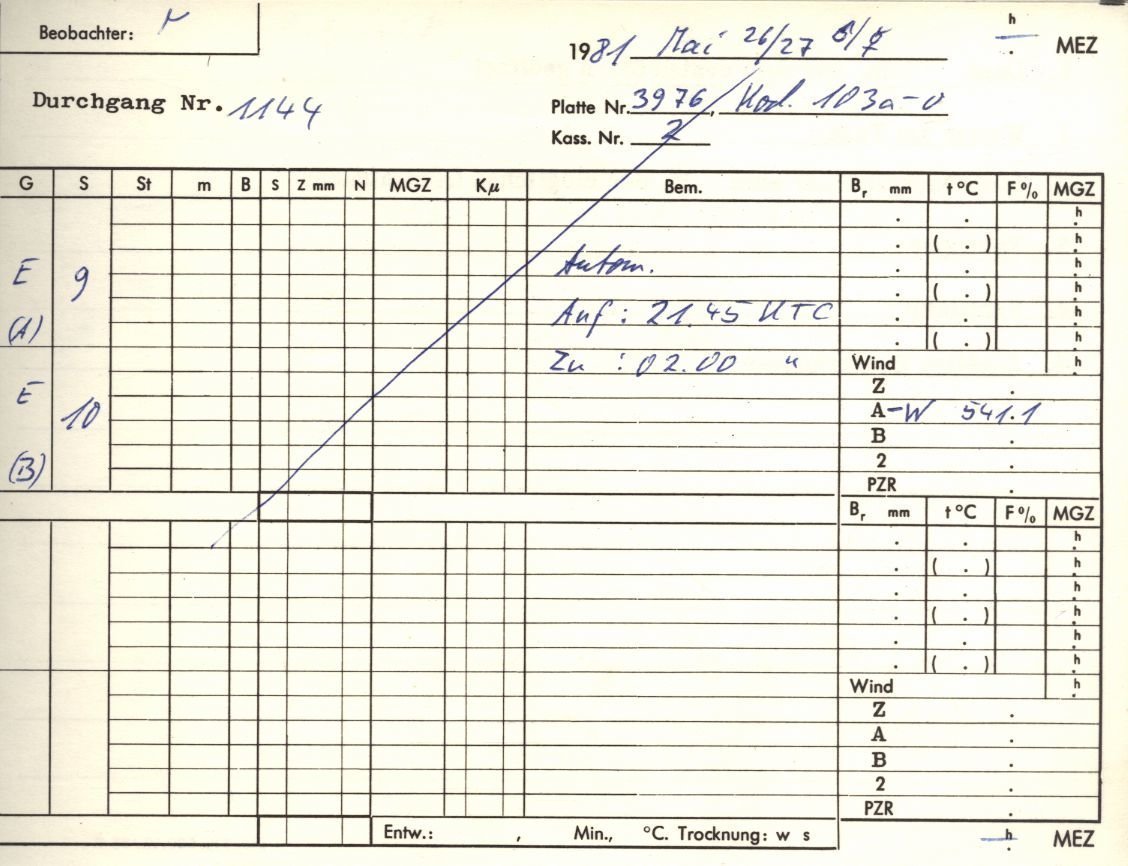 Beobachter:
1981 Mai 26/27
h
. MEZ
Durchgang Nr. 1144
Platte Nr. 3976, Kod. 103a-O
Kass. Nr. 2
G S St m B S Z mm N MGZ Kμ Bem. Br mm t °C F % MGZ
. . h
. ( . ) h
E 9 Autom. . . h
. ( . ) h
(A) Auf : 21.45 UTC . . h
. ( . ) h
Zu : 02.00 " Wind h
E Z .
10 A-W 541.1
B .
(B) 2 .
PZR .
Br mm t °C F % MGZ
. . h
. ( . ) h
. . h
. ( . ) h
. . h
. ( . ) h
Wind h
Z .
A .
B .
2 .
PZR .
Entw.: , Min., °C. Trocknung: w s
h
. MEZ